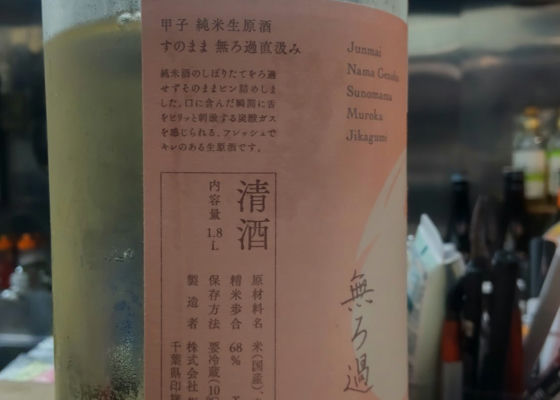 甲子 純米生原酒
すのまま 無ろ過直汲み
純米酒のしぼりたてをろ過
せずそのままビン詰めしま
した。口に含んだ瞬間に舌
をピリッと刺激する炭酸ガス
を感じられる、フレッシュで
キレのある生原酒です。
Junmai
Nama Genshu
Sunomama
Muroka
Jikagumi
清酒
内容量 1.8L
原材料名 米(国産)、
精米歩合 68%
保存方法 要冷蔵(10
製造者 株式会社
千葉県印旛
無ろ過